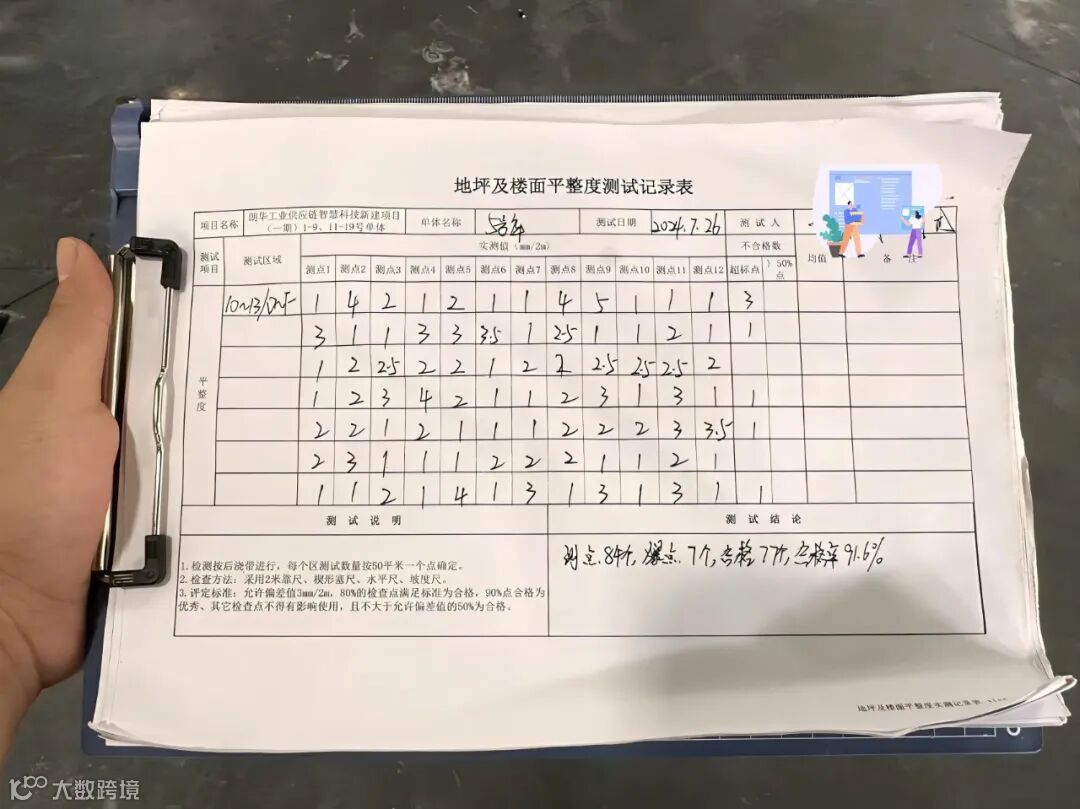 地坪及楼面平整度测试记录表
项目名称 朗华工业供应链智慧科技新建项目(一期)1-9、11-19号单体 单体名称 5号库 测试日期 2024.7.26 测试人
测试项目 测试区域 实测值(mm/2m) 不合格数 均值 备注
测点1 测点2 测点3 测点4 测点5 测点6 测点7 测点8 测点9 测点10 测点11 测点12 超标点 〉50%点
平整度
1 4 2 1 2 1 1 4 5 1 1 1 3
3 1 1 3 3 3.5 1 2.5 1 1 2 1 1
1 2 2.5 2 2 1 2 2 2.5 2.5 2.5 2
1 2 3 4 2 1 1 2 3 1 3 1 1
2 2 1 2 1 1 1 2 2 2 3 3.5 1
2 3 1 1 1 2 2 2 1 1 2 1
1 1 2 1 4 1 3 1 3 1 3 1 1
测试说明 测试结论
1.检测按后浇带进行，每个区测试数量按50平米一个点确定。
2.检查方法：采用2米靠尺、楔形塞尺、水平尺、坡度尺。
3.评定标准：允许偏差值3mm/2m，80%的检查点满足标准为合格，90%点合格为
优秀、其它检查点不得有影响使用，且不大于允许偏差值的50%为合格。
测点84个，爆点7个，合格77个，合格率91.6%
地坪及楼面平整度实测记录表
大数跨境